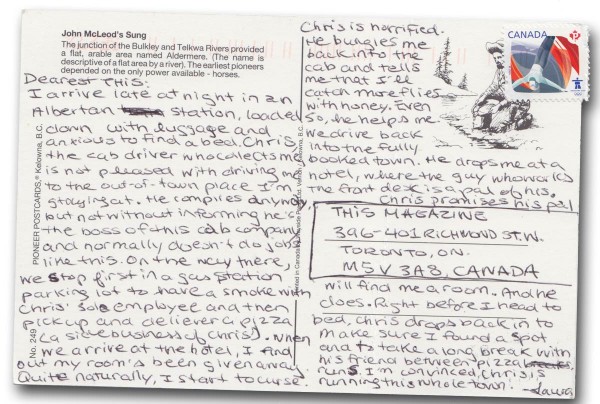 John McLeod's Sung
The junction of the Bulkley and Telkwa Rivers provided
a flat, arable area named Aldermere. (The name is
descriptive of a flat area by a river). The earliest pioneers
depended on the only power available - horses.
Dearest THIS:
I arrive late at night in an
Albertan station, loaded
down with luggage and
anxious to find a bed. Chris,
the cab driver who collects me,
is not pleased with driving me
to the out-of-town place I'm
staying at. He complies anyway,
but not without informing he's
the boss of this cab company
and normally doesn't do jobs
like this. On the way there,
we stop first in a gas station
parking lot to have a smoke with
Chris' sole employee and then
pick up and deliever a pizza
(a side business of Chris'). When
we arrive at the hotel, I find
out my room's been given away.
Quite naturally, I start to curse.
Chris is horrified.
He bungles me
back into the
cab and tells
me that I'll
catch more flies
with honey. Even
so, he helps me.
We drive back
into the fully
booked town. He drops me at a
hotel, where the guy who works
the front desk is a pal of his.
Chris promises his pal
THIS MAGAZINE
396-401 RICHMOND ST. W.
TORONTO, ON.
M5V 3A8, CANADA
will find me a room. And he
does. Right before I head to
bed, Chris drops back in to
make sure I found a spot
and to take a long break with
his friend between pizza
runs. I'm convinced, Chris is
running this whole town. -Laura
CANADA
P
No. 249
PIONEER POSTCARDS, Kelowna, B.C.